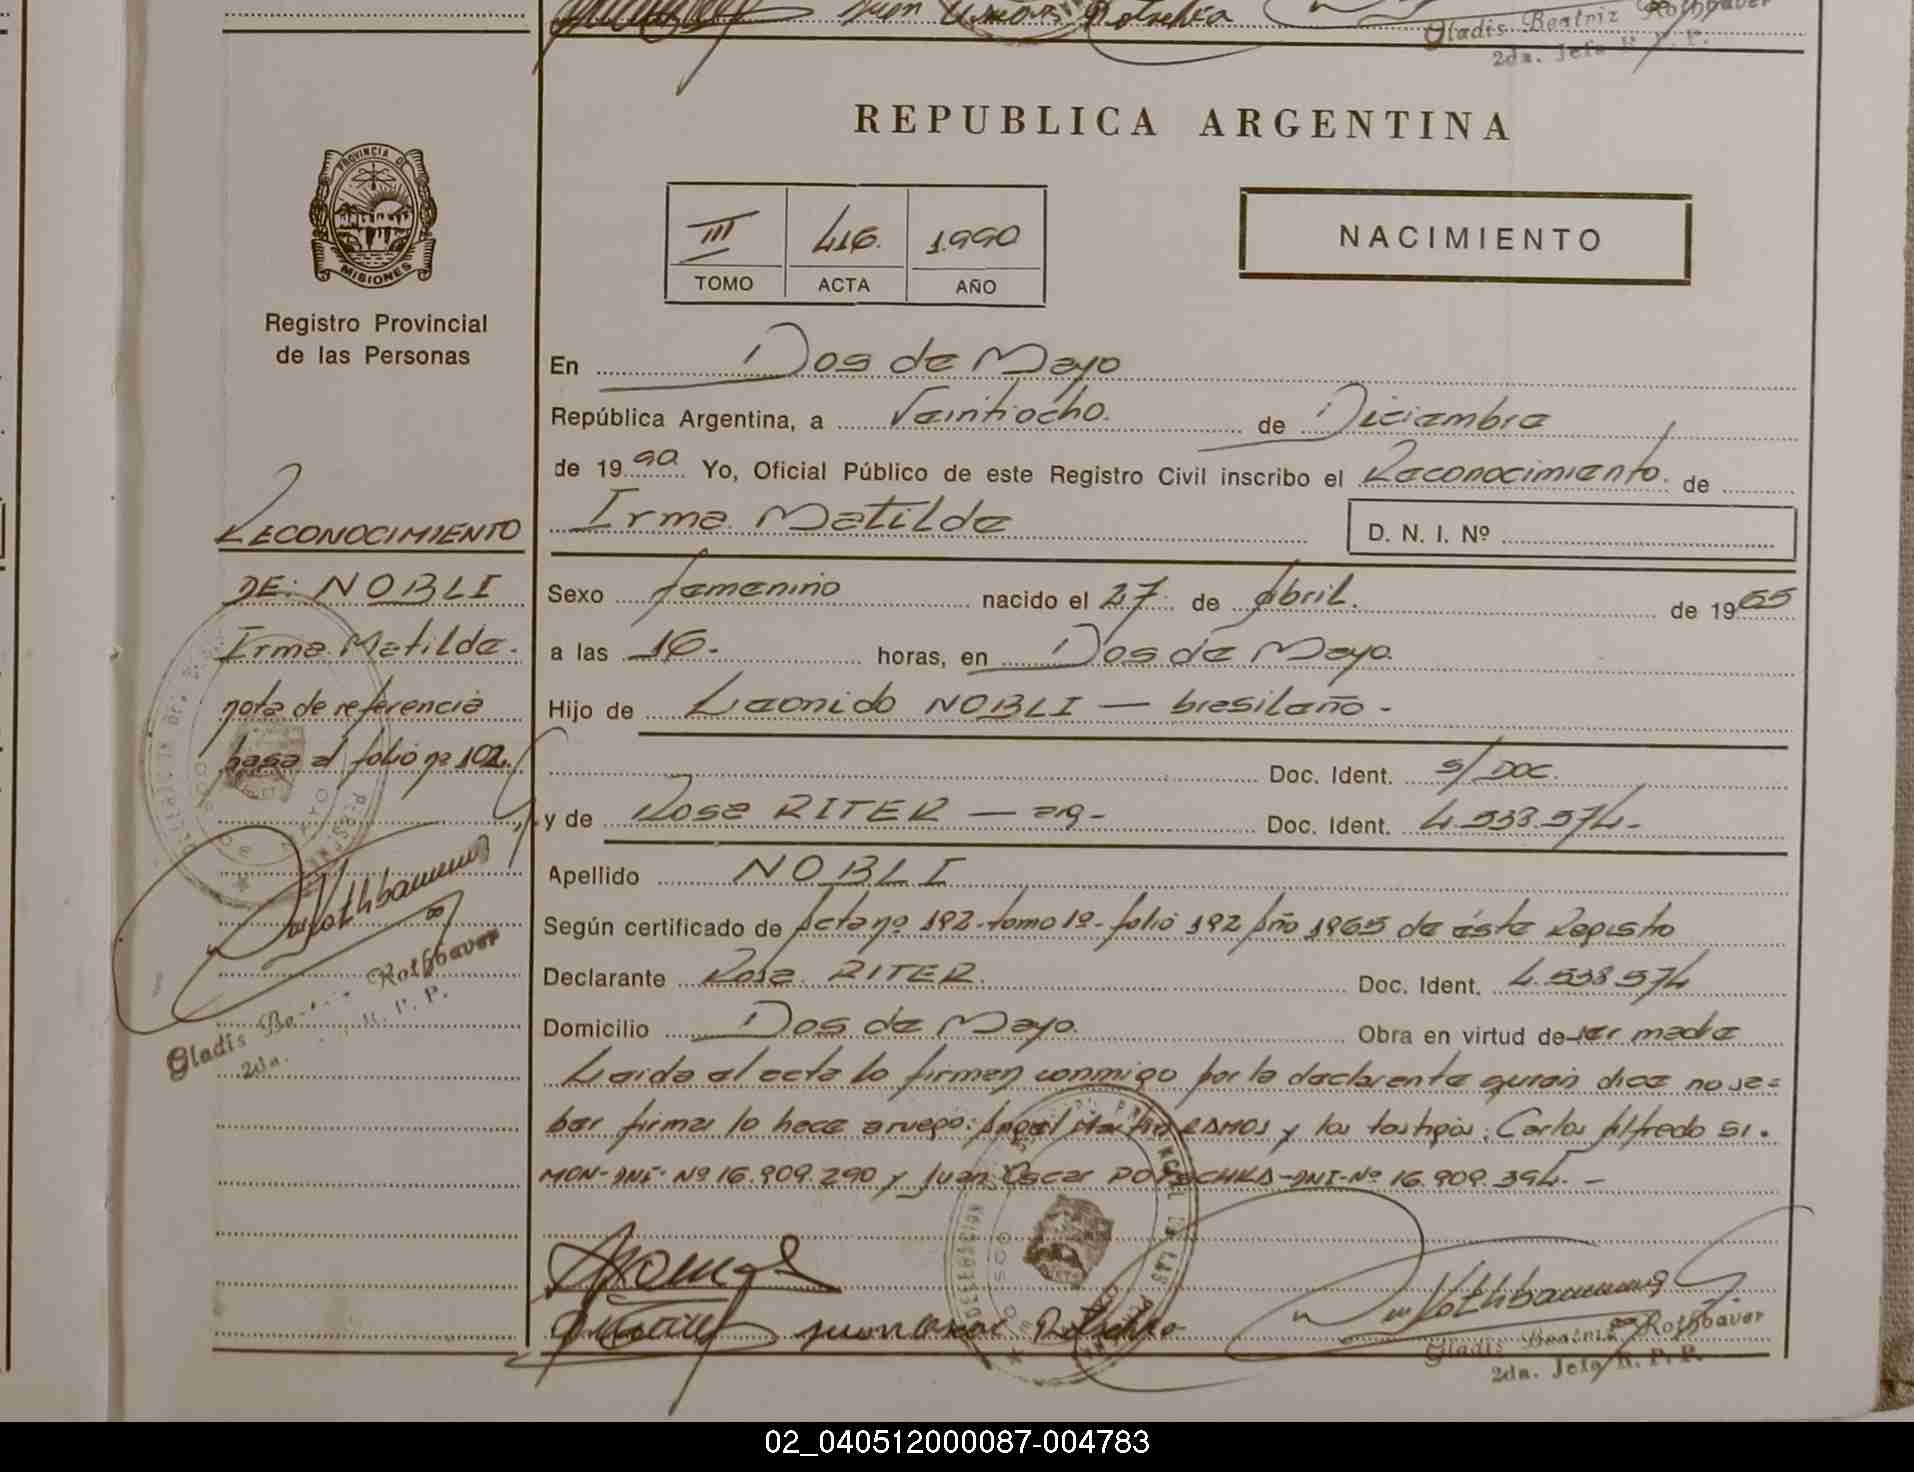 Juan
Gladis Beatriz Rothbaver
2da. Jefe R. P. P.
REPUBLICA ARGENTINA
PROVINCIA DE
MISIONES
III 416. 1990
TOMO ACTA AÑO
NACIMIENTO
Registro Provincial
de las Personas
En Dos de Mayo
República Argentina, a Veintiocho. de Diciembre
de 1990 Yo, Oficial Público de este Registro Civil inscribo el Reconocimiento. de
Irma Matilde
D. N. I. Nº
RECONOCIMIENTO
DE: NOBLI
Irma Matilde.
nota de referencia
pasa al folio nº 102.
Rothbaver
Gladis Be Rothbaver
2da. R. P. P.
Sexo femenino nacido el 27 de Abril. de 1965
a las 16. horas, en Dos de Mayo.
Hijo de Leonido NOBLI — brasileño -
Doc. Ident. s/Doc.
y de Rosa RITER — arg- Doc. Ident. 4.538.574-
Apellido NOBLI
Según certificado de Acta nº 192-tomo 1º-folio 192 Año 1965 de éste Registro
Declarante Rosa RITER. Doc. Ident. 4.538.574
Domicilio Dos de Mayo. Obra en virtud de ser madre
Leida el acta lo firman conmigo por la declarante quien dice no sa=
ber firmar lo hace a ruego: Angel RAMOS y los testigos: Carlos Alfredo SI.
MON-DNI-Nº 16.909.290 y Juan Oscar POTSCHKA-DNI-Nº 16.909.394. -
Juan Oscar
Gladis Beatriz Rothbaver
2da. Jefe R. P. P.
02_040512000087-004783